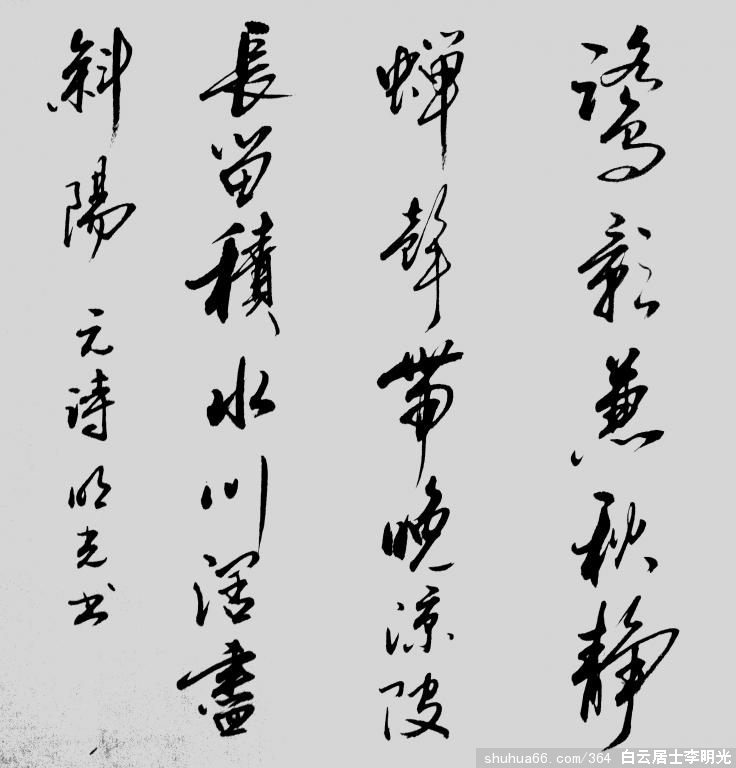 鷺影兼秋静
蝉聲帶晚凉陂
長留積水川闊盡
斜陽 元詩 明光书
shuhua66.com/364 白云居士李明光